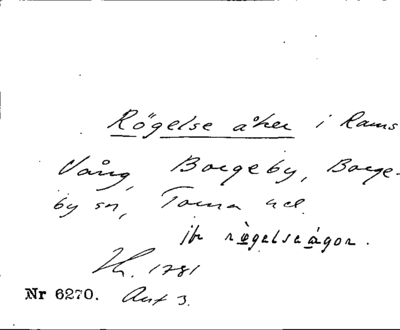 Rögelse åker i Rams
Vång, Borgeby, Borge-
by sn, Torna hd.
jfr rögelseågor.
Hh. 1781
Nr 6270. Ant 3.